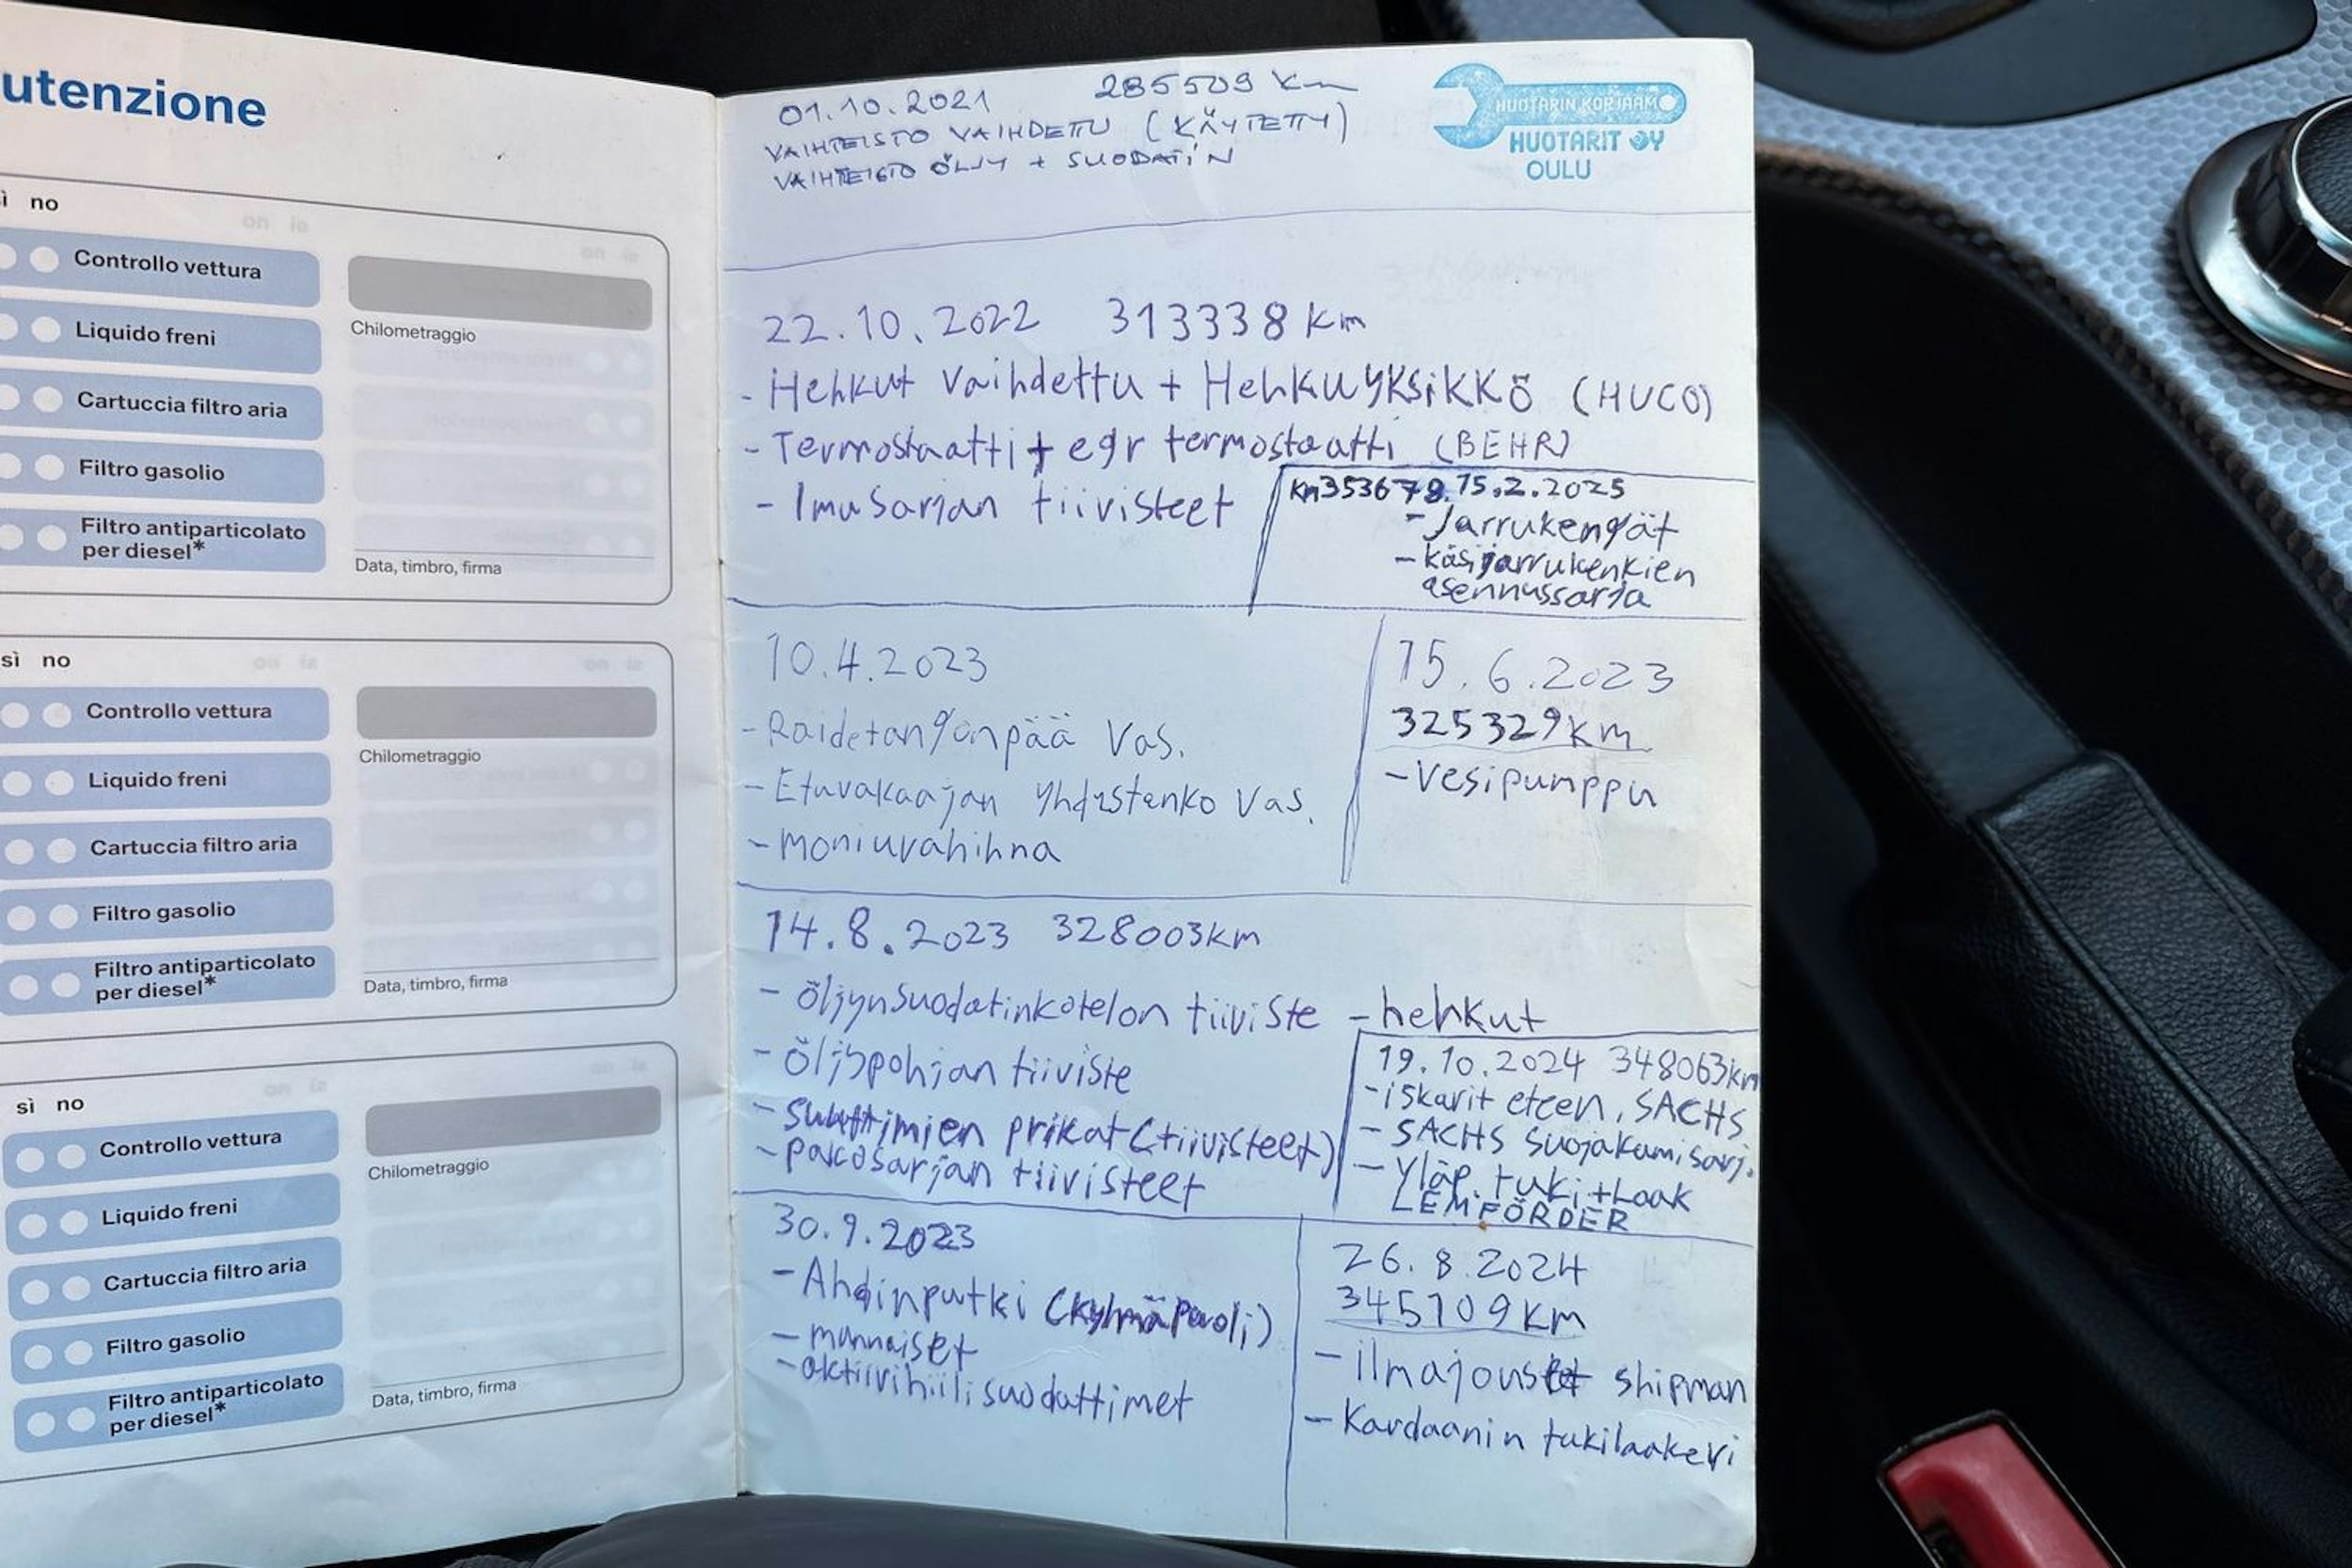 utenzione
sì no
Controllo vettura
Liquido freni
Cartuccia filtro aria
Filtro gasolio
Filtro antiparticolato
per diesel*
Chilometraggio
Data, timbro, firma
sì no
Controllo vettura
Liquido freni
Cartuccia filtro aria
Filtro gasolio
Filtro antiparticolato
per diesel*
Chilometraggio
Data, timbro, firma
sì no
Controllo vettura
Liquido freni
Cartuccia filtro aria
Filtro gasolio
Filtro antiparticolato
per diesel*
Chilometraggio
Data, timbro, firma
01.10.2021 285509 Km
VAIHTEISTO VAIHDETTU (KÄYTETTY)
VAIHTEISTO ÖLJY + SUODATIN
HUOTARIN KORJAAMO
HUOTARIT OY
OULU
22.10.2022 313338 km
- Hehkut Vaihdettu + Hehkuyksikkö (HUCO)
- Termostaatti + egr termostaatti (BEHR)
- Imusarjan tiivisteet
km353678. 15.2.2025
- Jarrukengät
- käsijarrukenkien
asennussarja
10.4.2023
- Raidetangonpää Vas.
- Etuvakaajan yhdystanko Vas.
- moniurahihna
15.6.2023
325329km
- Vesipumppu
14.8.2023 328003km
- öljynsuodatinkotelon tiiviste - hehkut
- öljypohjan tiiviste
- suuttimien prikat (tiivisteet)
- pakosarjan tiivisteet
19.10.2024 348063km
- iskarit eteen, SACHS
- SACHS suojakumisarj.
- Yläp. tuki + Laak
LEMFÖRDER
30.9.2023
- Ahdinputki (kylmäpuoli)
- munnaiset
- aktiivihiilisuodattimet
26.8.2024
345109km
- ilmajouset shipman
- Kardaanin tukilaakeri